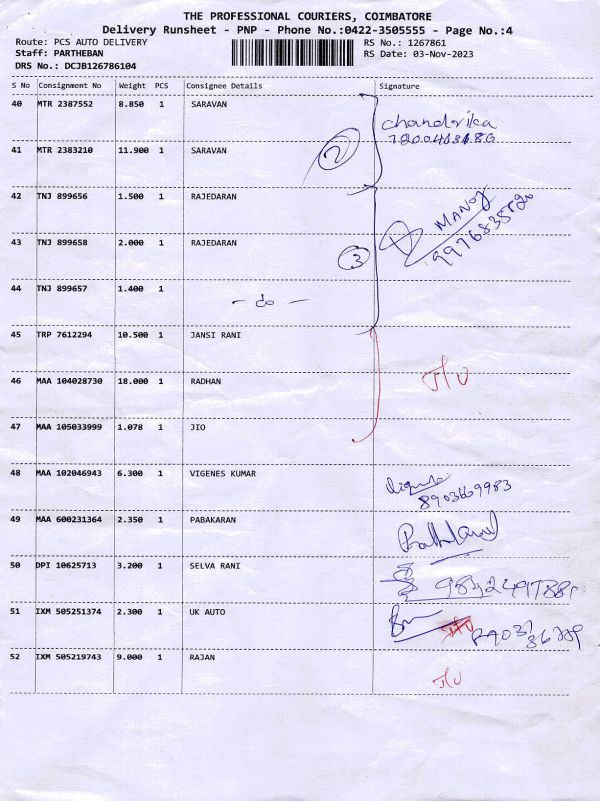 THE PROFESSIONAL COURIERS, COIMBATORE
Delivery Runsheet - PNP - Phone No.:0422-3505555 - Page No.:4
Route: PCS AUTO DELIVERY RS No.: 1267861
Staff: PARTHEBAN RS Date: 03-Nov-2023
DRS No.: DCJB126786104
S No Consignment No Weight PCS Consignee Details Signature
40 MTR 2387552 8.850 1 SARAVAN
chandrika
2
41 MTR 2383210 11.900 1 SARAVAN
42 TNJ 899656 1.500 1 RAJEDARAN
MANOJ
43 TNJ 899658 2.000 1 RAJEDARAN
3
44 TNJ 899657 1.400 1
- do -
45 TRP 7612294 10.500 1 JANSI RANI
46 MAA 104028730 18.000 1 RADHAN
47 MAA 105033999 1.078 1 JIO
48 MAA 102046943 6.300 1 VIGENES KUMAR
8903669983
49 MAA 600231364 2.350 1 PABAKARAN
50 DPI 10625713 3.200 1 SELVA RANI
51 IXM 505251374 2.300 1 UK AUTO
52 IXM 505219743 9.000 1 RAJAN